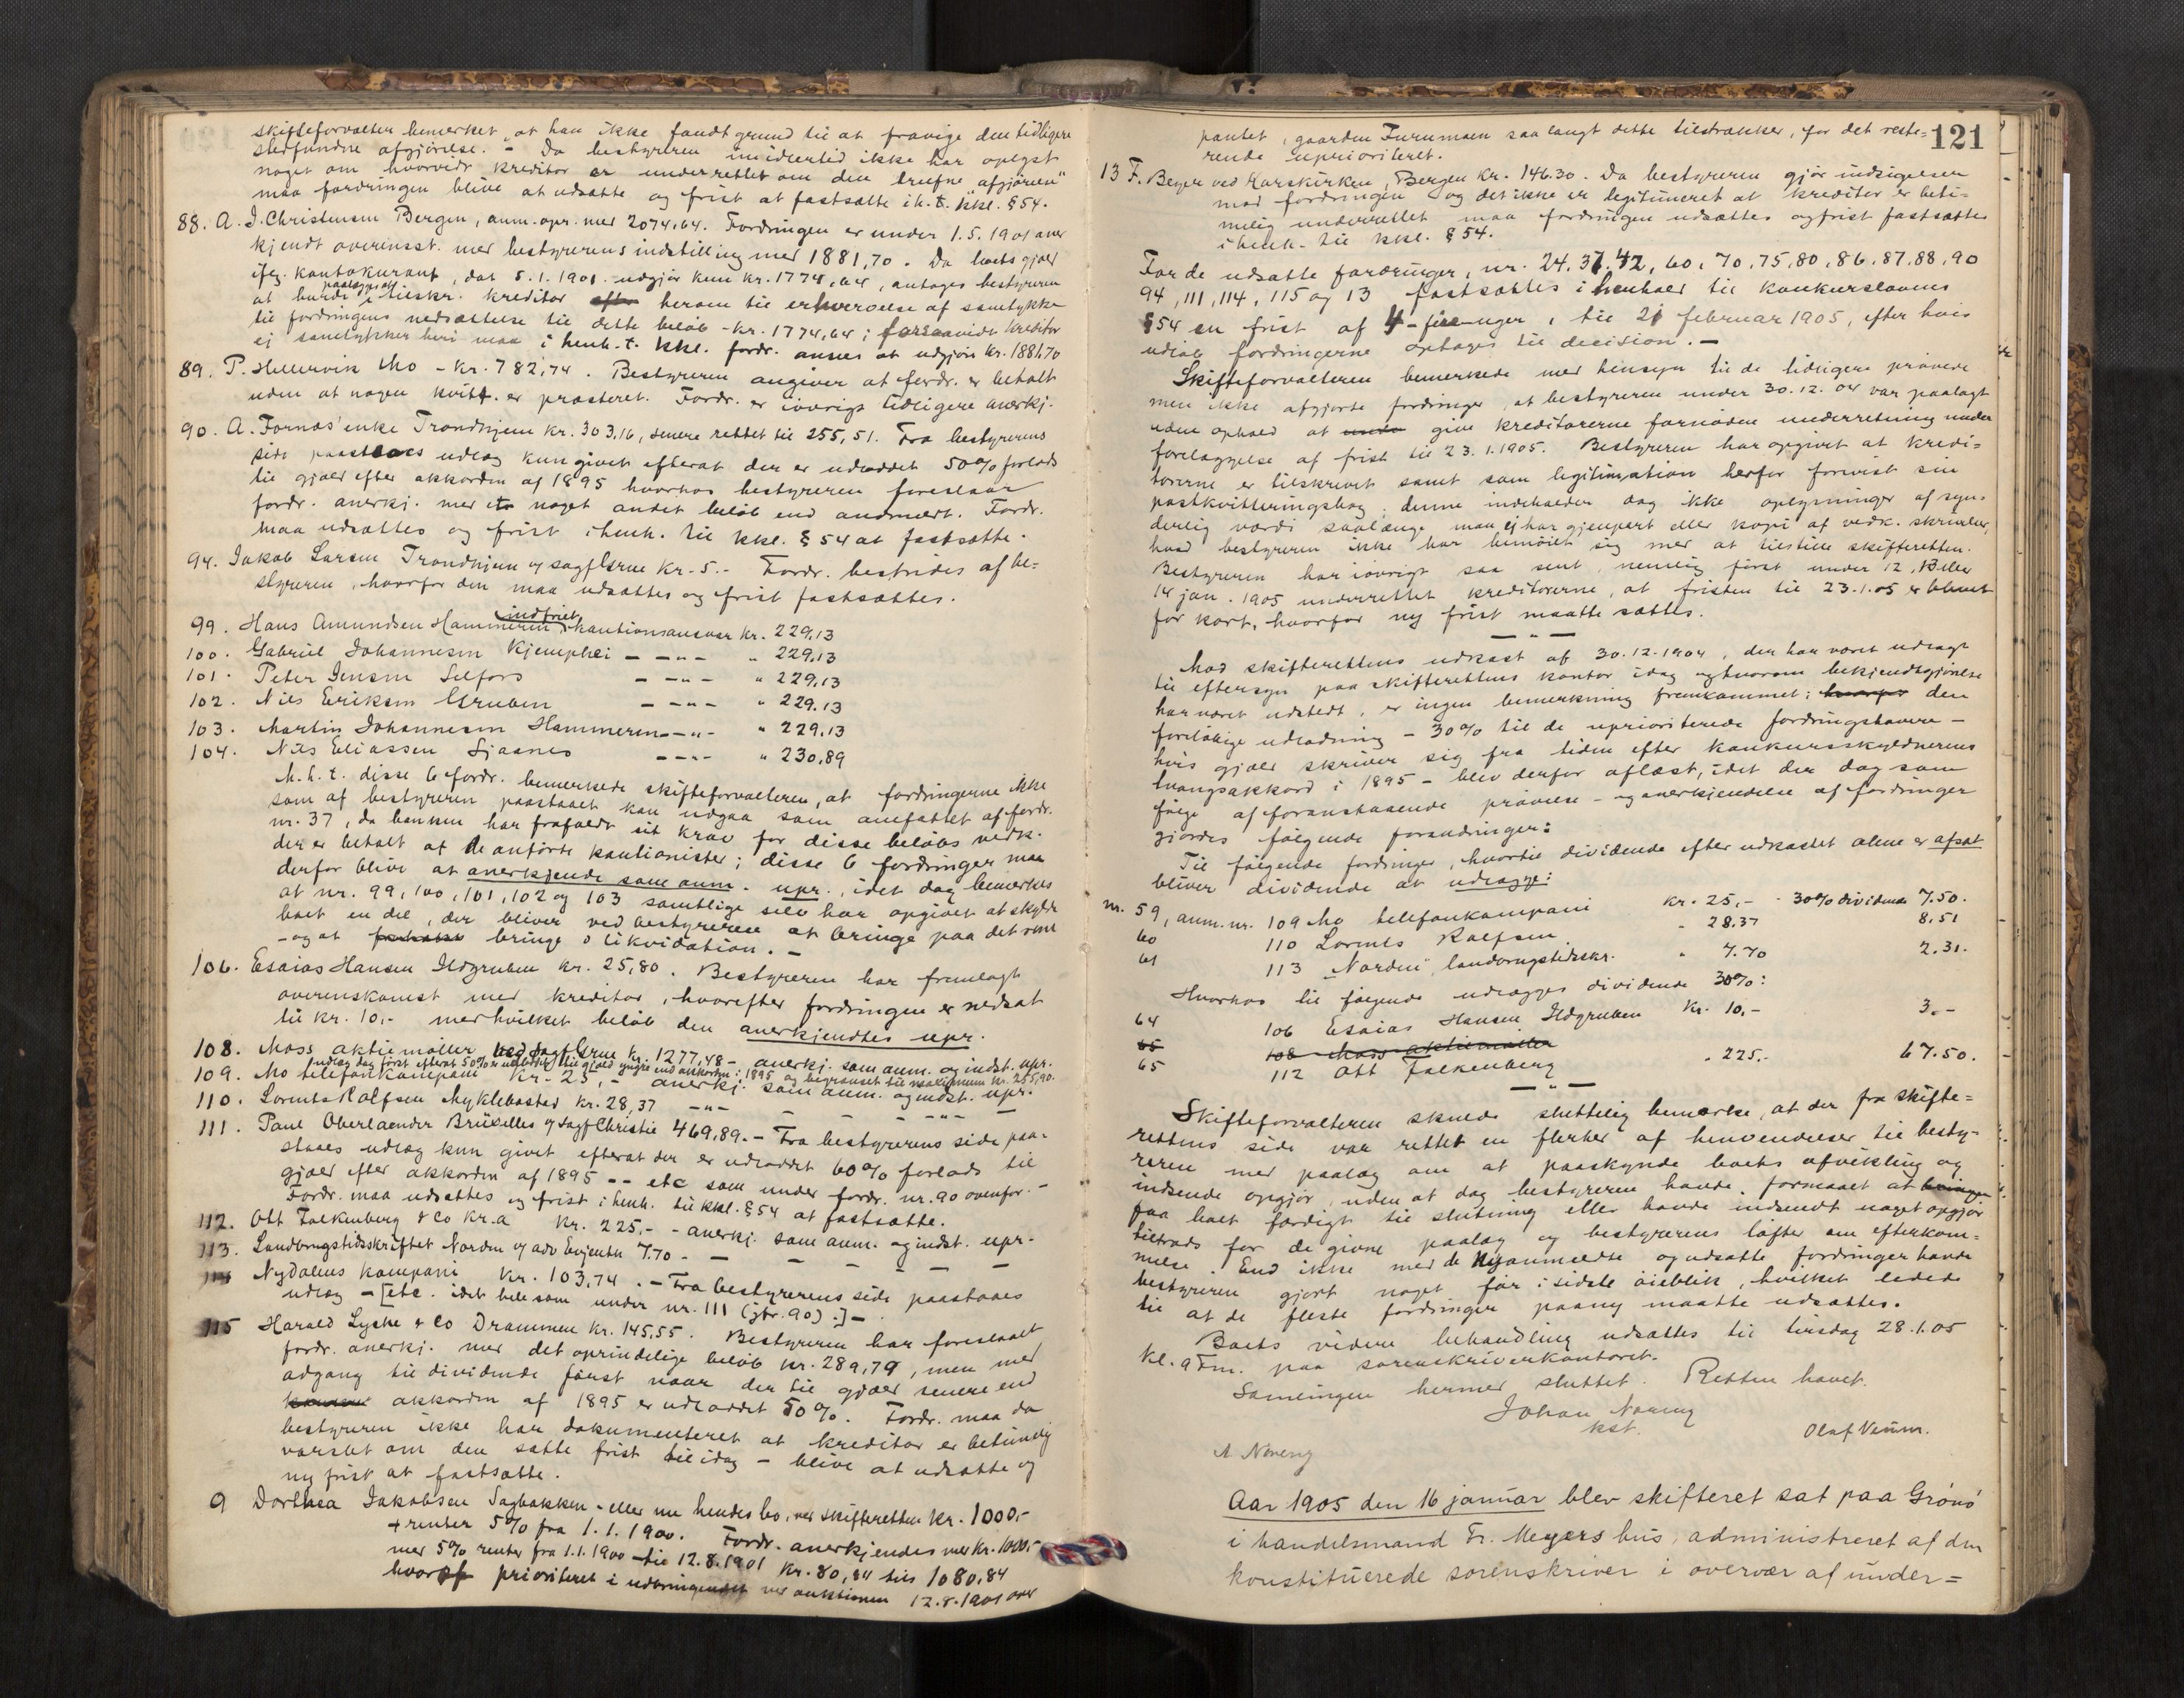 skifteforvalteren bemerket, at han ikke fandt grund til at fravige den tidligere
stedfundne afgjørelse. – Da bestyreren imidlertid ikke har oplyst
noget om hvorvidt kreditor er underrettet om den trufne "afgjørelse"
maa fordringen blive at udsætte og frist at fastsætte i h. t. kkl. § 54.
88. A. J. Christensen Bergen, anm. opr. med 2074,64. Fordringen er under 1.5.1901 aner
kjendt overensst. med bestyrerens indstilling med 1881,70. Da boets gjæld
ifg. kontokurant, dat 5.1.1901 udgjør kun kr. 1774,64, antages bestyreren
at burde paalægges at tilskr. kreditor herom til erhvervelse af samtykke
til fordringens nedsættelse til dette beløb – kr. 1774,64; forsaavidt kreditor
ej samtykker heri maa i henh. t. kkl. fordr. ansees at udgjøre kr. 1881,70
89. P. Hellervik Mo – kr. 782,74. Bestyreren angiver at fordr. er betalt
uden at nogen kvitt. er præsteret. Fordr. er iøvrigt tidligere anerkj.
90. A. Fornæs' enke Trondhjem kr. 303,16, senere rettet til 255,51. Fra bestyrerens
side paastaaes udlæg kun givet efterat der er udloddet 50% forlods
til gjæld efter akkorden af 1895 hvorhos bestyreren foreslaar
fordr. anerkj. med et noget andet beløb end anmeldt. Fordr.
maa udsættes og frist i henh. til kkl. § 54 at fastsætte.
94. Jakob Larsen Trondhjem v/ sagf Lerne kr. 5.– Fordr. bestrides af be=
styreren, hvorfor den maa udsættes og frist fastsættes.
99. Hans Amundsen Hammeren indfriet kautionsansvar kr. 229,13
100. Gabriel Johannesen Kjemphei – – " – " 229,13
101. Peter Jensen Selfors – – " – " 229,13
102. Nils Eriksen Gruben – – " – " 229,13
103. Martin Johannesen Hammeren – " – " 229,13
104. Nils Eliassen Sjaanes – – " – " 230,89
M. h. t. disse 6 fordr. bemerkede skifteforvalteren, at fordringerne ikke
som af bestyreren paastaaet kan udgaa som omfattet af fordr.
nr. 37, da banken har frafaldt sit krav for disse beløbs vedk.
der er betalt af de anførte kautionister; disse 6 fordringer maa
derfor blive at anerkjende som anm. upr., idet dog bemerkes
at nr. 99, 100, 101, 102 og 103 samtlige selv har opgivet at skylde
boet en del, der bliver ved bestyrerens at bringe paa det rene
– og at bringe i likvidation. –
106. Esaias Hansen Ildgruben kr. 25,80. Bestyreren har fremlagt
overenskomst med kreditor, hvorefter fordringen er nedsat
til kr. 10,– med hvilket beløb den anerkjendtes upr.
108. Moss aktiemøller ved sagf Lerne kr. 1277,48 – anerkj. som anm. og indst. upr.
udlæg dog først efterat 50% er udloddet til gjæld yngre end akkorden i 1895 og begrænset til maximum kr. 255,90.
109. Mo telefonkompani kr. 25,– anerkj. som anm. og indst. upr.
110. Lorents Rolfsen Myklebostad kr. 28,37 – " – – – – " – –
111. Paul Oberlaender Brüxelles v/ sagf Christie 469,89. – Fra bestyrerens side paa=
staaes udlæg kun givet efterat der er udloddet 60% forlods til
gjæld efter akkorden af 1895 – – etc som under fordr. nr. 90 ovenfor. –
Fordr. maa udsættes og frist i henh. til kkl. § 54 at fastsætte.
112. Ott Falkenberg & Co Kr.a kr. 225.– – anerkj. som anm. og indst. upr.
113. Landbrugstidsskriftet Norden v/ adv Evjenth 7.70 – – – – – –
114 Nydalens kompani kr. 103,74. – Fra bestyrerens side paastaaes
udlæg – [etc. idet hele som under nr. 111 (jfr. 90).] –
115 Harald Lyche & Co Drammen kr. 145,55. Bestyreren har foreslaaet
fordr. anerkj. med det oprindelige beløb kr. 289,79, men med
adgang til dividende først naar der til gjæld senere end
akkorden af 1895 er udloddet 50%. Fordr. maa da
bestyreren ikke har dokumenteret at kreditor er betimelig
varslet om den satte frist til idag – blive at udsætte og
ny frist at fastsætte.
9 Dorthea Jakobsen Sagbakken – eller nu hendes bo, ved skifteretten kr. 1000.–
+ renter 5% fra 1.1.1900. Fordr. anerkjendes med kr. 1000.–
med 5% renter fra 1.1.1900 – til 12.8.1901 kr. 80,84 tils 1080,84
hvoraf prioriteret i udbringendet ved auktionen 12.8.1901 over
121
pantet, gaarden Furumoen saa langt dette tilstrækker, for det reste=
rende uprioriteret.
13 F. Beyer ved Korskirken, Bergen kr. 146.30. Da bestyreren gjør indsigelser
mod fordringen og det ikke er legitimeret at kreditor er beti=
melig underrettet maa fordringen udsættes og frist fastsættes
i henh. til kkl. § 54.
For de udsatte fordringer, nr. 24, 37, 42, 60, 70, 75, 80, 86, 87, 88, 90
94, 111, 114, 115 og 13 fastsættes i henhold til konkurslovens
§ 54 en frist af 4 – fire – uger, til 21 februar 1905, efter hvis
udløb fordringerne optages til decision. –
Skifteforvalteren bemerkede med hensyn til de tidligere prøvede
men ikke afgjorte fordringer, at bestyreren under 30.12.04 var paalagt
uden ophold at give kreditorerne fornøden underretning under
forelæggelse af frist til 23.1.1905. Bestyreren har opgivet at kredi=
torerne er tilskrevet samt som legitimation herfor forevist sin
postkvitteringsbog; denne indeholder dog ikke oplysninger af syn=
derlig værdi saalænge man ej har gjenpart eller kopi af vedk. skrivelser,
hvad bestyreren ikke har bemøiet sig med at tilstille skifteretten.
Bestyreren har iøvrigt saa sent, nemlig først under 12, 13 eller
14 jan. 1905 underrettet kreditorerne, at fristen til 23.1.05 er blevet
for kort, hvorfor ny frist maatte sættes.
— " —
Mod skifterettens udkast af 30.12.1904, der har været udlagt
til eftersyn paa skifterettens kontor idag og hvorom bekjendtgjørelse
har været udstedt, er ingen bemerkning fremkommet; den
foreløbige udlodning – 30% til de uprioriterede fordringshavere –
hvis gjæld skriver sig fra tiden efter konkursskyldnerens
tvangsakkord i 1895 – blev derfor oplæst, idet der dog som
følge af foranstaaende prøvelse – og anerkjendelse af fordringer
gjordes følgende forandringer:
Til følgende fordringer, hvortil dividende efter udkastet alene er afsat
bliver dividende at udlægge:
nr. 59, anm. nr. 109 Mo telefonkompani kr. 25,– 30% dividende 7.50.
60 110 Lorents Rolfsen " 28.37 8,51
61 113 "Norden", landbrugstidsskr. " 7.70 2.31.
Hvorhos til følgende udlægges dividende 30%:
64 106 Esaias Hansen Ildgruben kr. 10,– 3.–
65 108 Moss aktiemøller
65 112 Ott Falkenberg " 225.– 67.50.
— " —
Skifteforvalteren skulde sluttelig bemærke, at der fra skifte=
rettens side var rettet en flerhed af henvendelser til besty=
reren med paalæg om at paaskynde boets afvikling og
indsende opgjør, uden at dog bestyreren havde formaaet at
faa boet færdigt til slutning eller havde indsendt noget opgjør
tiltrods for de givne paalæg og bestyrerens løfter om efterkom=
melse. End ikke med de nyanmeldte og udsatte fordringer havde
bestyreren gjort noget før i sidste øieblik, hvilket ledede
til at de fleste fordringer paany maatte udsættes.
Boets videre behandling udsættes til tirsdag 28.1.05
kl. 9 Fm. paa sorenskriverkontoret.
Samlingen hermed sluttet. Retten hævet.
Johan Noreng
kst.
Olaf Vennn.
A Noreng
Aar 1905 den 16 januar blev skifteret sat paa Grønø
i handelsmand Fr. Meyers hus, administreret af den
konstituerede sorenskriver i overvær af under=